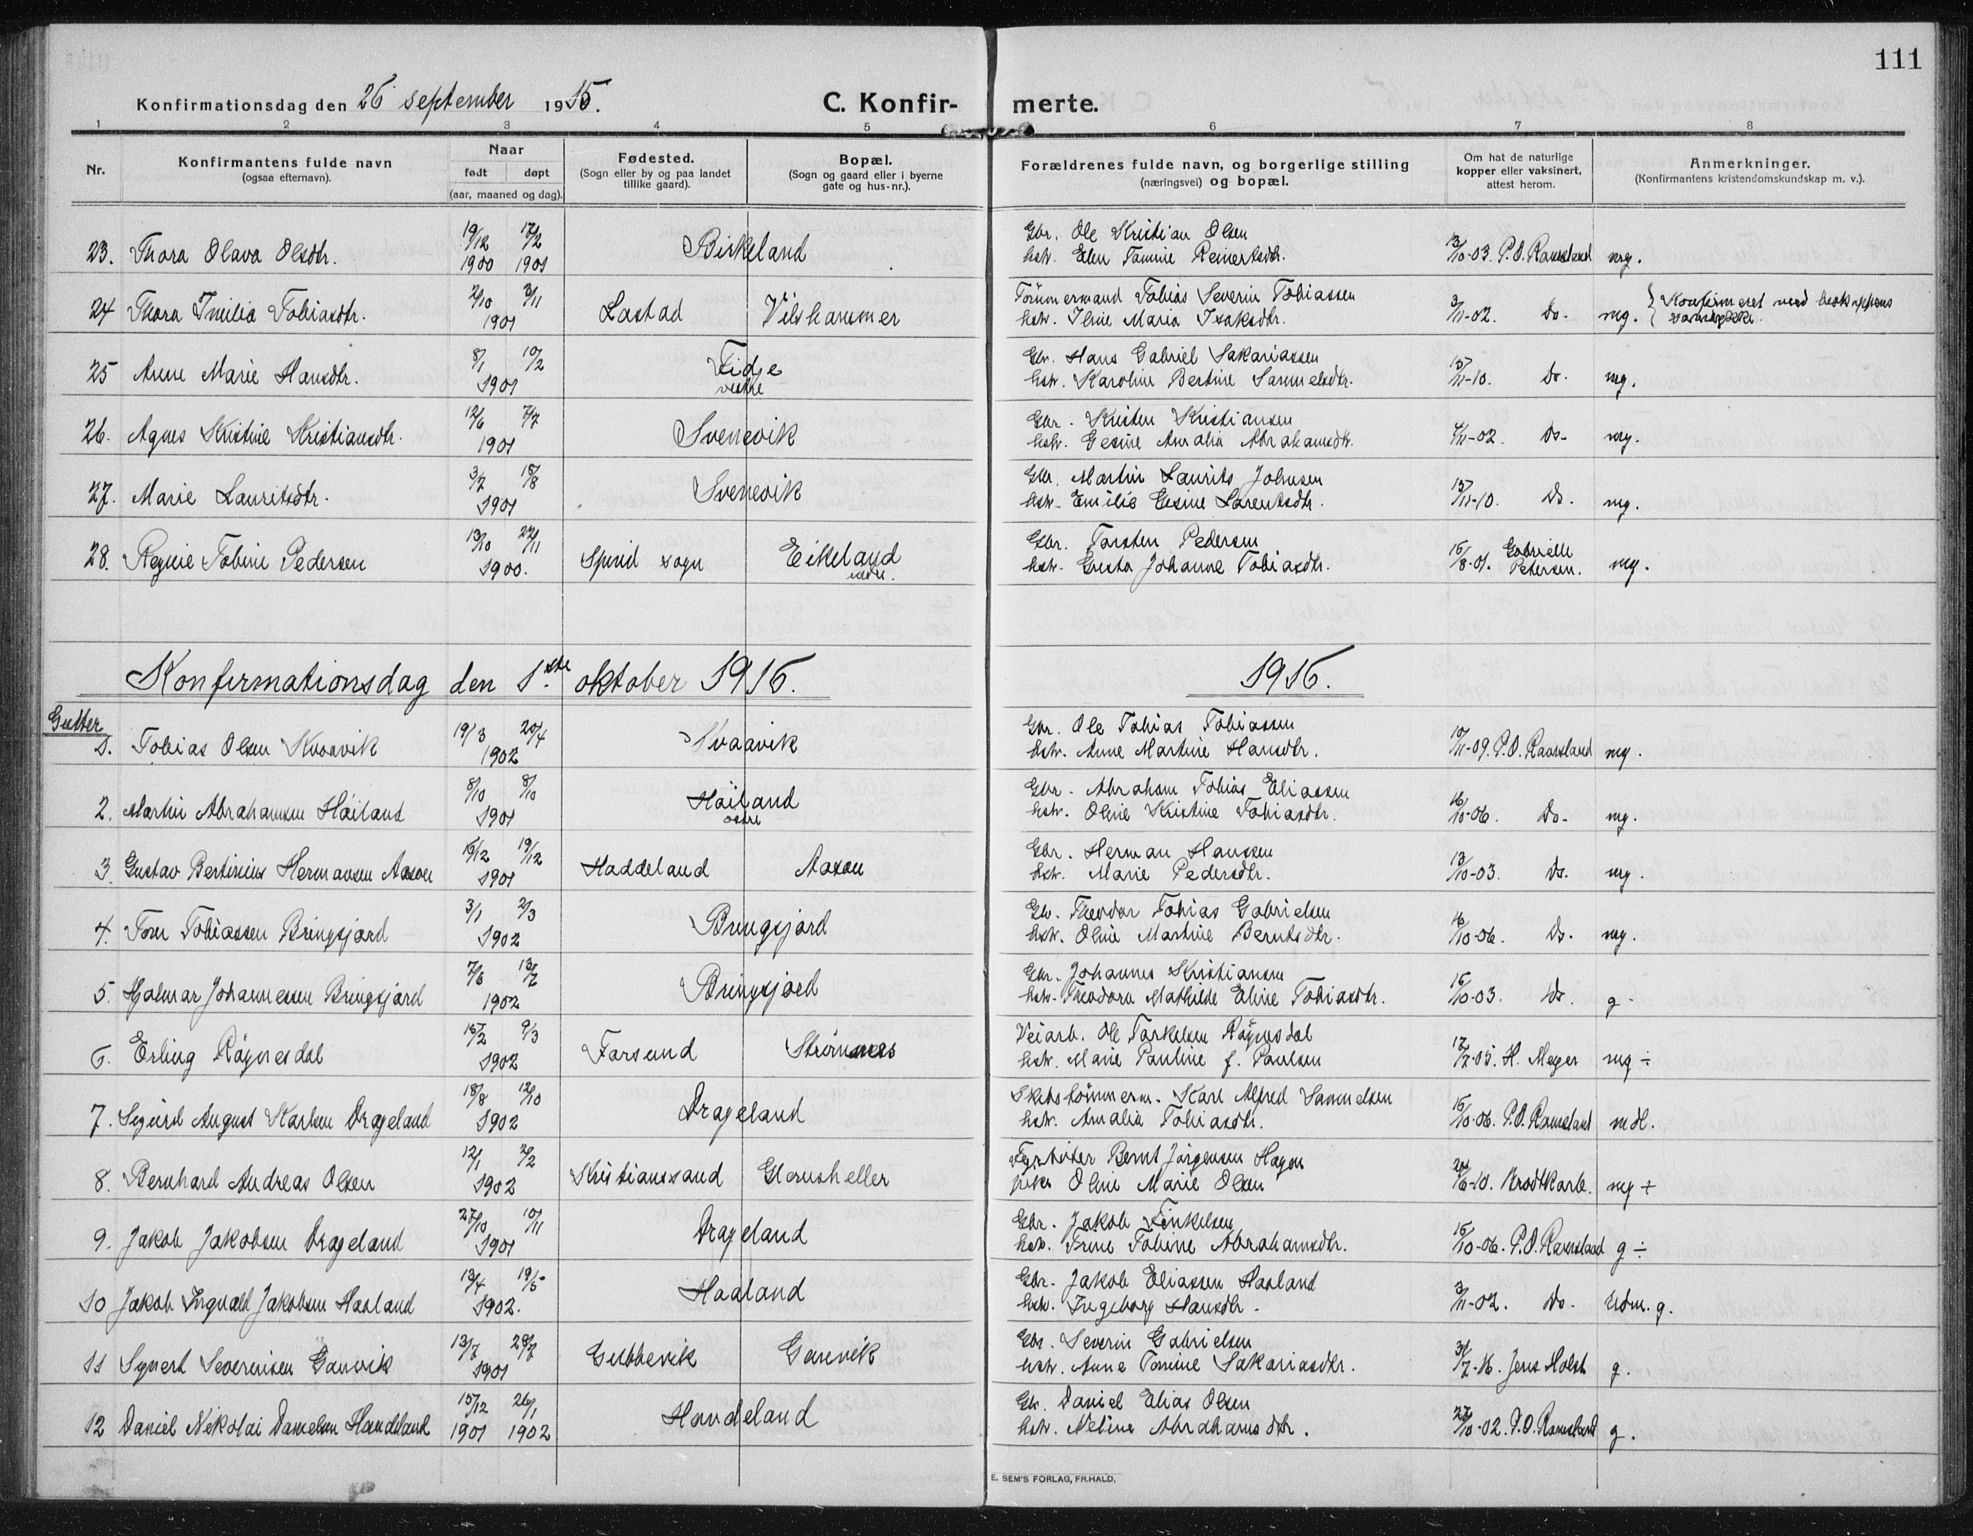 111
Konfirmationsdag den 26 september 1915. C. Konfir- merte.
1 2 3 4 5 6 7 8
Nr. Konfirmantens fulde navn (ogsaa efternavn). Naar født døpt (aar, maaned og dag). Fødested. (Sogn eller by og paa landet tillike gaard). Bopæl. (Sogn og gaard eller i byerne gate og hus-nr.). Forældrenes fulde navn, og borgerlige stilling (næringsvei) og bopæl. Om hat de naturlige kopper eller vaksinert, attest herom. Anmerkninger. (Konfirmantens kristendomskundskap m. v.).
19/12 17/2 Gbr. Ole Kristian Olsen
23. Thora Olava Olsdtr. 1900 1901 Birkeland hst. Elen Tomine Reinertsdtr. 13/10-03. P.O. Ramsland mg.
2/10 3/11 Tømmermand Tobias Severin Tobiassen
24 Thora Emilie Tobiasdtr. 1901 Lastad Vilshammer hst. Thine Maria Isaksdtr. 3/11-02. Do. mg. Konfirmeret med biskoppens
8/1 10/2 Gbr. Hans Gabriel Sakariassen
25 Anne Marie Hansdtr. 1901 Fidje vestre hst. Karoline Bertine Samuelsdtr. 15/11-10. Do. mg.
12/6 7/7 Gbr. Kristen Kristiansen
26. Agnes Kristine Kristiansdtr. 1901 Svenevik hst. Gesine Amalia Abrahamsdtr. 4/11-02. Do. mg.
3/7 18/8 Gbr. Martin Laurits Johnsen
27. Marie Lauritsdtr. 1901 Svenevik hst. Emilie Gesine Larentsdtr. 15/11-10. Do. mg.
13/10 22/11 Gbr. Torsten Pedersen
28. Regine Tobine Pedersen 1900. Spind sogn Eikeland hst. Greta Johanne Tobiasdtr. 15/8-01. Gabrielle Petersen. mg.
Konfirmationsdag den 1ste oktober 1916. 1916.
Gutter
19/3 20/4 Gbr. Ole Tobias Tobiassen
1. Tobias Olsen Kvaavik 1902 Kvaavik hst. Anne Martine Hansdtr. 10/11-09. P.O. Ramsland mg.
8/10 8/10 Gbr. Abraham Tobias Eliassen
2. Martin Abrahamsen Høiland 1901 Høiland østre hst. Oline Kristine Tobiasdtr. 16/10-06. Do. mg.
15/12 19/12 Gbr. Herman Hanssen
3. Gustav Bertinius Hermansen Aasen 1901 Haddeland Aasen hst. Marie Pedersdtr. 13/10-03. Do. mg.
3/1 2/3 Gbr. Theodor Tobias Gabrielsen
4. Tom Tobiassen Bringsjord 1902 Bringsjord hst. Oline Martine Berntsdtr. 16/10-06. Do. mg.
7/6 13/7 Gbr. Johannes Kristiansen
5. Hjalmar Johannessen Bringsjord 1902 Bringsjord hst. Theodora Mathilde Eline Tobiasdtr. 15/10-03. Do. g
15/2 9/3 Veiarb. Ole Torkelsen Røgnesdal
6. Erling Røgnesdal 1902 Farsund Strømnes hst. Marie Pauline f. Paulsen 17/7-05. H. Meyer mg ÷
18/8 12/10 Skibstømmerm. Karl Alfred Samuelsen
7. Sigurd August Karlsen Drageland 1902 Drageland hst. Amalia Tobiasdtr. 15/10-06. P.O. Ramsland mdl.
12/1 2/2 Fyrbøter Bernt Jørgensen Hagen
8. Bernhard Andreas Olsen 1902 Kristianssand Glarusheller pike Oline Marie Olsen Brodtkorb. mg +
27/10 10/11 Gbr. Jakob Finkelsen
9. Jakob Jakobsen Drageland 1901 Drageland hst. Trine Tobine Abrahamsdtr. 15/10-06. P.O. Ramsland g ÷
13/4 19/5 Gbr. Jakob Eliassen Haaland
10 Jakob Ingvald Jakobsen Haaland 1902. Haaland hst. Ingeborg Hansdtr. 3/11-02. Do. Udm. g.
13/7 28/7 Gbr. Severin Gabrielsen
11 Synert Severinsen Garvik 1901 Gubbevik Garevik hst. Anne Tomine Sakariasdtr. 31/7-16. Jens Holst g.
15/12 26/1 Gbr. Daniel Elias Olsen
12 Daniel Nikolai Danielsen Handeland 1901 1902 Handeland hst. Neline Abrahamsdtr. 27/10-02. P.O. Ramsland g.
E. SEM'S FORLAG, FR.HALD.